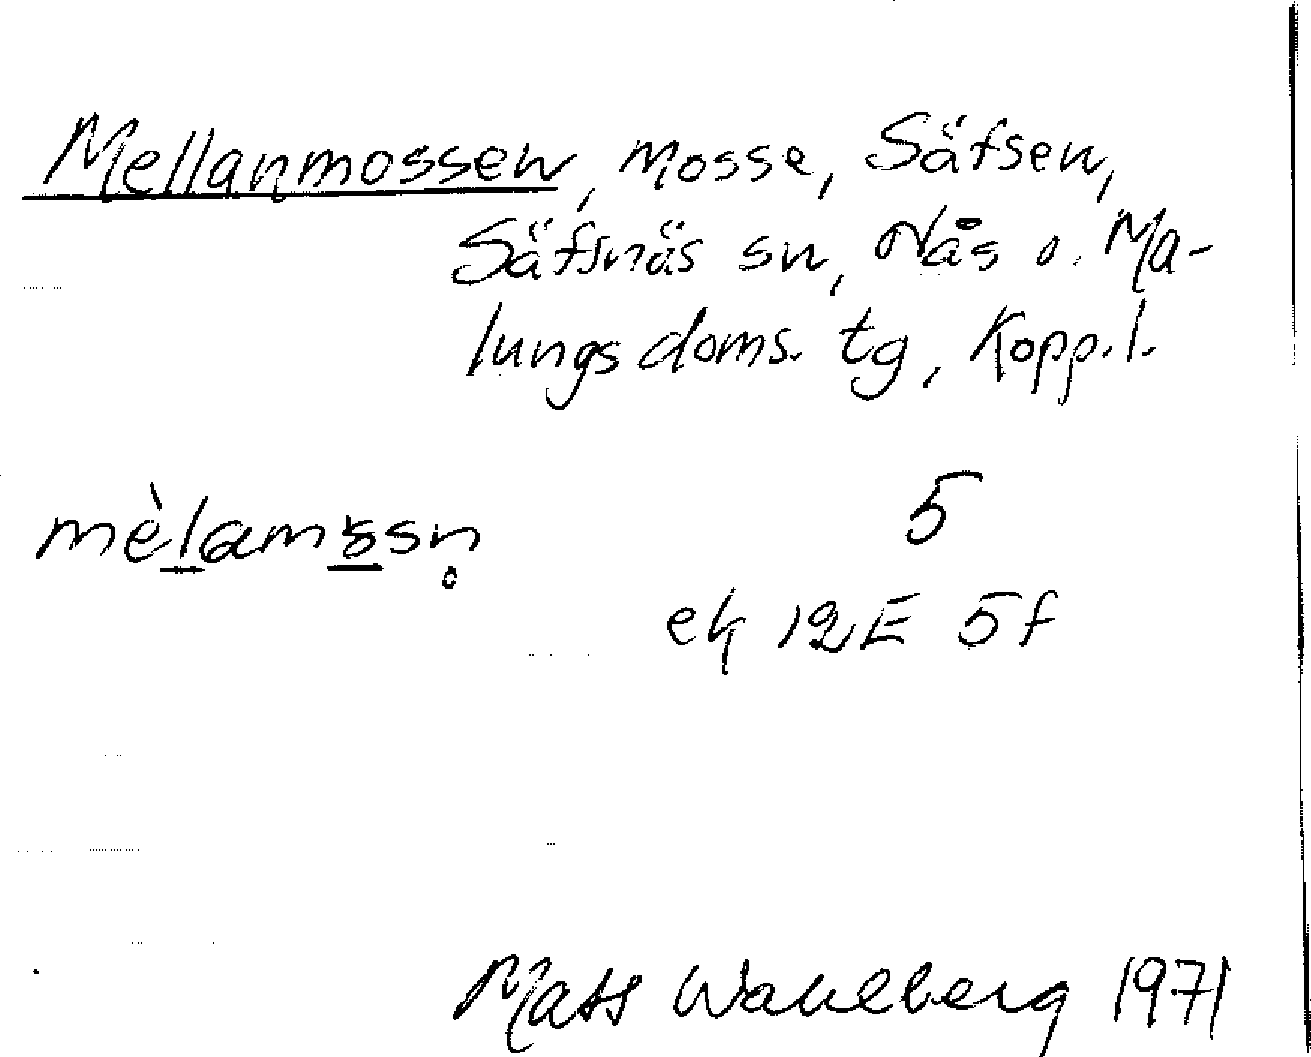 Mellanmossen, mosse, Säfsen,
Säfsnäs sn, Nås o. Ma-
lungs doms. tg, Kopp.l.
5
ek 12E 5f
Mats Wahlberg 1971